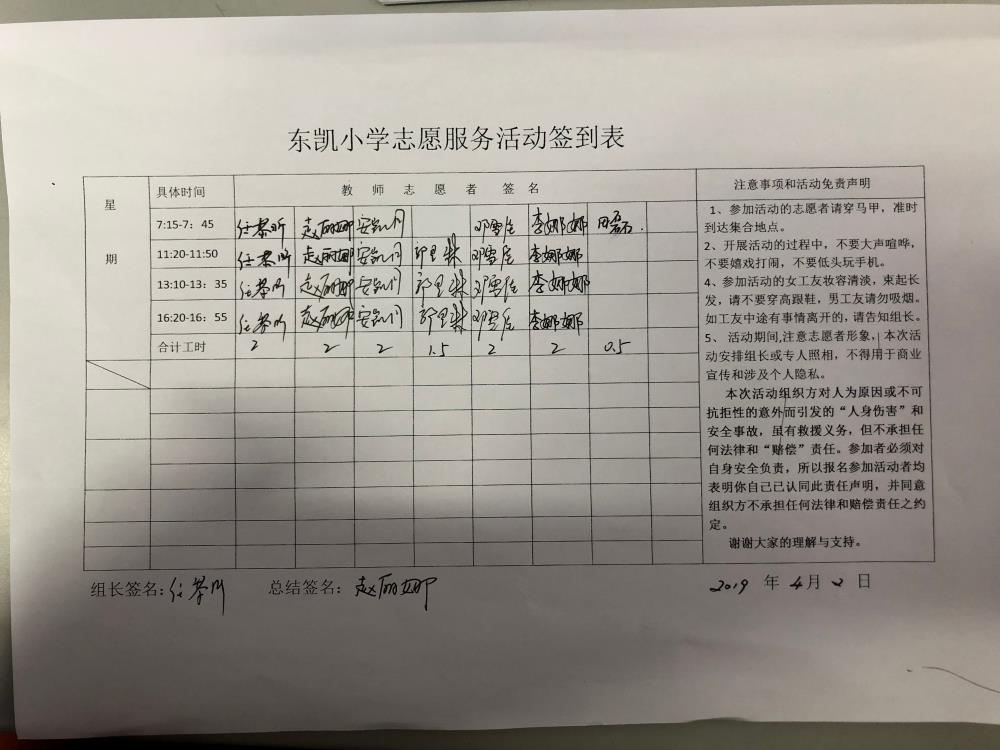 东凯小学志愿服务活动签到表
星期
具体时间 教师志愿者签名
7:15-7：45 赵丽娜 李娜娜
11:20-11:50 赵丽娜 李娜娜
13:10-13：35 赵丽娜 李娜娜
16:20-16：55 赵丽娜 李娜娜
合计工时 2 2 2 1.5 2 2 0.5
注意事项和活动免责声明
1、参加活动的志愿者请穿马甲，准时
到达集合地点。
2、开展活动的过程中，不要大声喧哗，
不要嬉戏打闹，不要低头玩手机。
4、参加活动的女工友妆容清淡，束起长
发，请不要穿高跟鞋，男工友请勿吸烟。
如工友中途有事情离开的，请告知组长。
5、 活动期间,注意志愿者形象，本次活
动安排组长或专人照相，不得用于商业
宣传和涉及个人隐私。
本次活动组织方对人为原因或不可
抗拒性的意外而引发的“人身伤害”和
安全事故，虽有救援义务，但不承担任
何法律和“赔偿”责任。参加者必须对
自身安全负责，所以报名参加活动者均
表明你自己已认同此责任声明，并同意
组织方不承担任何法律和赔偿责任之约
定。
谢谢大家的理解与支持。
组长签名: 总结签名：赵丽娜 2019 年 4月 2 日